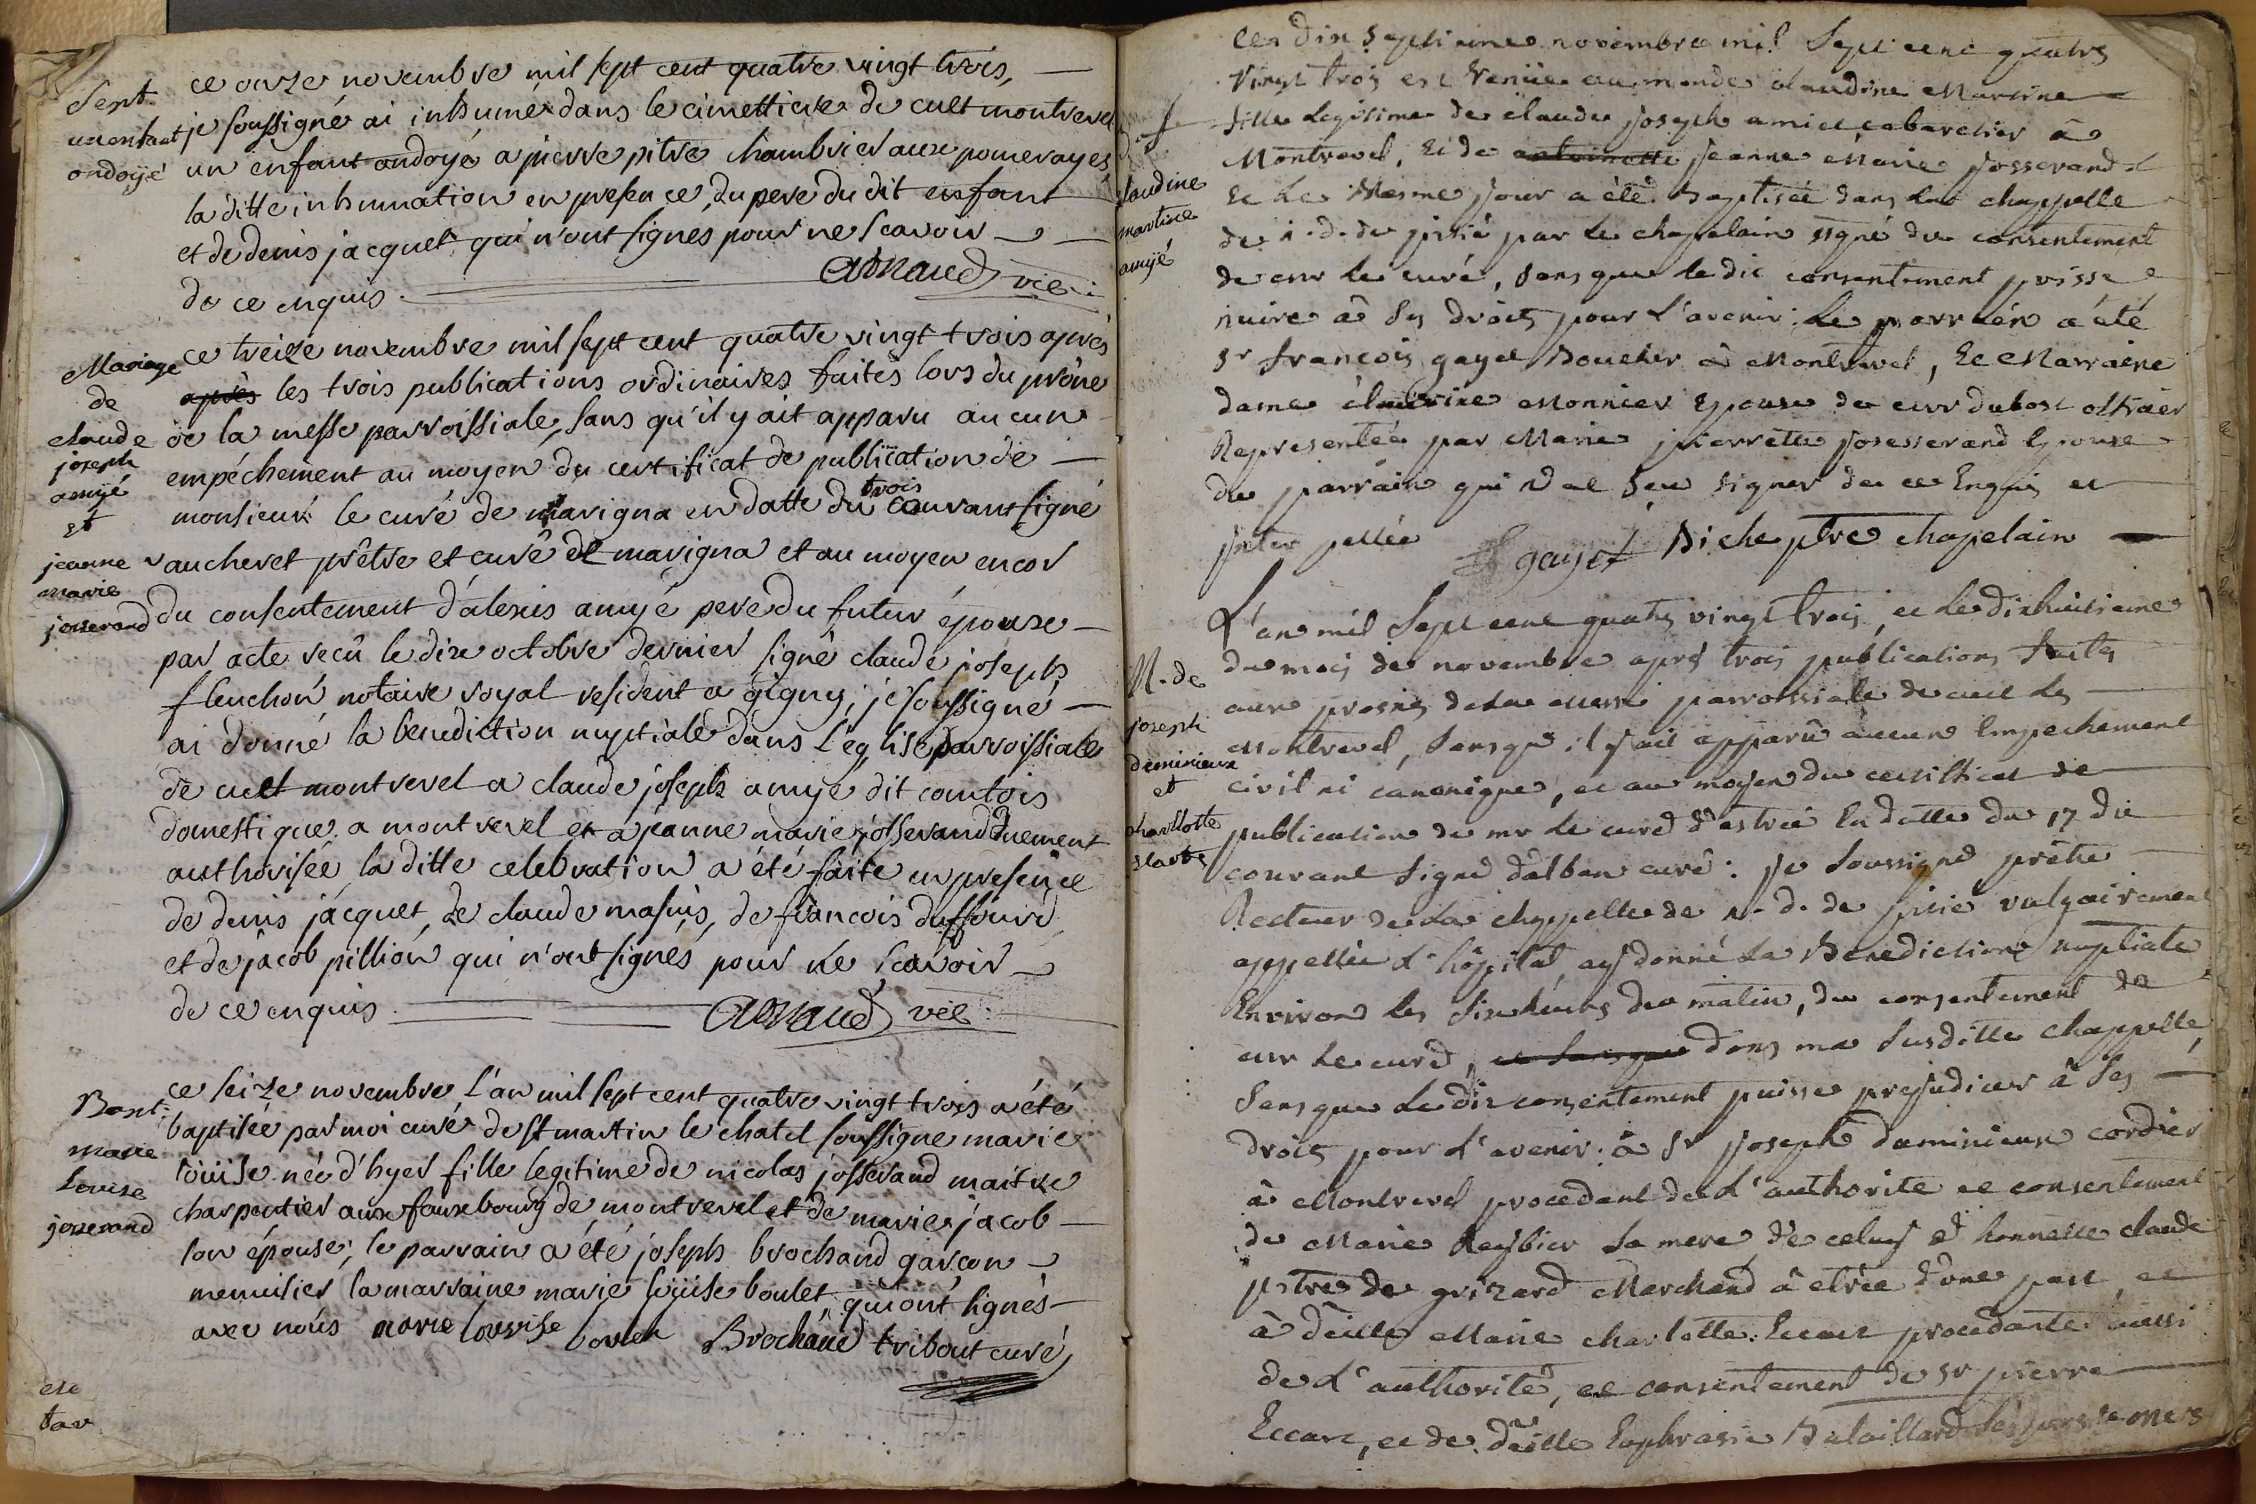 Sept.
un enfant
ondoÿé
ce onze novembre mil sept cent quatre vingt trois,
je soussigné ai inhumé dans le cimettiere de cuet montrevel
un enfant ondoyé a pierre pitre chambrier aux pomerayes,
la ditte inhumation en presence du pere du dit enfant
et de denis jacquet qui n'ont signés pour ne scavoir
de ce enquis. Arnaud vic:
Mariage
de
claude
joseph
amÿé
et
jeanne
marie
josserand
ce treize novembre mil sept cent quatre vingt trois après
après les trois publications ordinaires faites lors du prône
de la messe parroissiale, sans qu'il y ait apparu aucun
empéchement au moyen du certificat de publication de
monsieur le curé de mavigna en datte du trois courant signé
vaucheret prêtre et curé de mavigna et au moyen encor
du consentement d'alexis amyé pere du futur épouse
par acte recû le dix octobre dernier signé claude joseph
fleuchon notaire royal resident a gigny; je soussigné
ai donné la benédiction nuptiale dans l'eglise parroissiale
de cuet montrevel a claude joseph amyé dit comtois
domestique a montrevel et a jeanne marie josserand duement
authorisée la ditte celebration a été faite en presence
de denis jacquet, de claude masuis, de francois duffour
et de jacob pillion qui n'ont signés pour ne scavoir
de ce enquis. Arnaud vic:
Bapt:
marie
Louise
josserand
ce seize novembre l'an mil sept cent quatre vingt trois a été
baptisée par moi curé de st martin le chatel soussigné marie
loüise née d'hyer fille legitime de nicolas josserand maitre
charpentier aux fauxbourg de montrevel et de marie jacob
son épouse; le parrain a été joseph brochand garcon
menuisier la marraine marie loüise boulet, qui ont signés
avec nous marie louvise boulet Brochand tribout curé
claudine
martine
amÿé
Ce dix septieme novembre mil Sept cent quatre
Vingt trois est Venüe au monde claudine Martine
fille Legitime de claude joseph amiet cabaretier à
Montrevel, Et de antoinette jeanne Marie josserand
Et Le Mesme jour a été Baptisée dans La chappelle
de n. d. de pitié par Le chapelain signé du consentement
de mr le curé, sans que le dit consentement puisse
nuire à Ses droits pour L'avenir: Le parrein a été
sr francois gayet Boucher à Montrevel, Et Marraine
dame claudine Monnier Epouse de mr dubost officier
Representée par Marie pierrette josserand Epouse
du parrain qui n'a Sçu Signer de ce Enquis et
jnter pellée gayet Biche ptre chapelain
M. de
joseph
deminieux
et
charllotte
L'an mil Sept cent quatre vingt trois, et Le dixhuitieme
du mois de novembre aprés trois publications faites
aux prosnes de La messe parroissiale de cuet Les
Montrevel, Sans qu'il y ait apparû aucun Empechement
civil ni canonique, et au moyen du certifficat de
publication de mr Le curé d'estrée En datte du 17 du
courant Signé dalban curé: je Soussigné prêtre
Recteur de La chappelle de n. d. de pitie vulgairement
appellée L'hôpital, ay donné La Benediction nuptiale
Environ les Six heures du matin, du consentement de
mr Le curé, et Sans que dans ma Susditte chappelle,
Sans que Le dit consentement puisse prejudicier à Ses
droits pour L'avenir: à sr joseph daminieux cordier
à Montrevel procedant de L'authorité et consentement
de Marie Reybier Sa mere, de celuy d'honneste claude
pitre de grizard Marchand à etrée d'une part, et
à délle Marie charlotte Eccart procédante aussi
de L'authorité, et consentement de sr pierre
Eccart, et de délle Euphrasie Balaillard Ses pere et mere